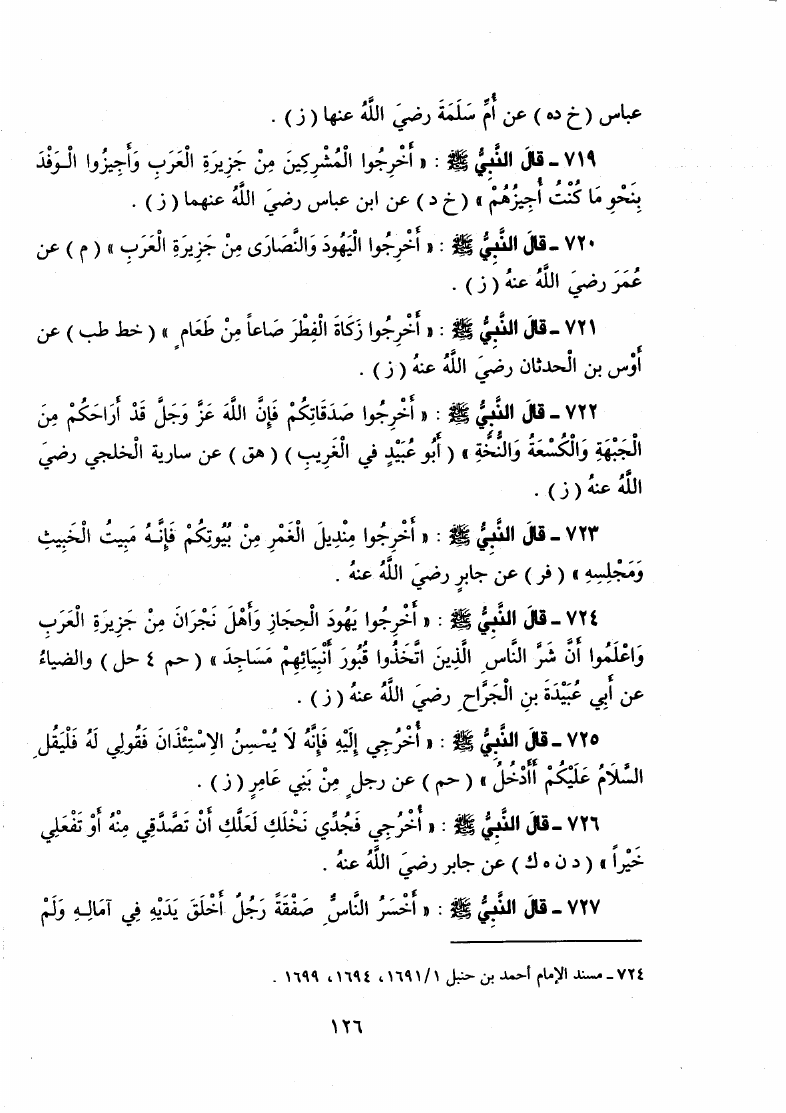 عباس (خ ده) عن أُمِّ سَلَمَةَ رضيَ اللَّهُ عنها (ز) .
٧١٩ ـ قالَ النَّبِيُّ ﷺ : « أَخْرِجُوا الْمُشْرِكِينَ مِنْ جَزِيرَةِ الْعَرَبِ وَأَجِيزُوا الْـوَفْدَ
بِنَحْوِ مَا كُنْتُ أُجِيزُهُمْ » (خ د) عن ابن عباس رضيَ اللَّهُ عنهما (ز) .
٧٢٠ ـ قالَ النَّبِيُّ ﷺ : « أَخْرِجُوا الْيَهُودَ وَالنَّصَارَى مِنْ جَزِيرَةِ الْعَرَبِ » (م) عن
عُمَرَ رضيَ اللَّهُ عنهُ (ز) .
٧٢١ ـ قالَ النَّبِيُّ ﷺ : « أَخْرِجُوا زَكَاةَ الْفِطْرَ صَاعاً مِنْ طَعَامٍ » (خط طب) عن
أَوْسِ بن الْحدثان رضيَ اللَّهُ عنهُ (ز) .
٧٢٢ ـ قالَ النَّبِيُّ ﷺ : « أَخْرِجُوا صَدَقَاتِكُمْ فَإِنَّ اللَّهَ عَزَّ وَجَلَّ قَدْ أَرَاحَكُمْ مِنَ
الْجَبْهَةِ وَالْكُسْعَةِ وَالنُّخَّةِ » (أَبُو عُبَيْدٍ في الْغَرِيبِ) (هق) عن سارية الخلجي رضيَ
اللَّهُ عنهُ (ز) .
٧٢٣ ـ قالَ النَّبِيُّ ﷺ : « أَخْرِجُوا مِنْدِيلَ الْغَمْرِ مِنْ بُيُوتِكُمْ فَإِنَّـهُ مَبِيتُ الْخَبِيثِ
وَمَجْلِسِهِ » (فر) عن جابرٍ رضيَ اللَّهُ عنهُ .
٧٢٤ ـ قالَ النَّبِيُّ ﷺ : « أَخْرِجُوا يَهُودَ الْحِجَازِ وَأَهْلَ نَجْرَانَ مِنْ جَزِيرَةِ الْعَرَبِ
وَاعْلَمُوا أَنَّ شَرَّ النَّاسِ الَّذِينَ اتَّخَذُوا قُبُورَ أَنْبِيَائِهِمْ مَسَاجِدَ » (حم ٤ حل) والضياءُ
عن أَبِي عُبَيْدَةَ بنِ الْجَرَّاحِ رضيَ اللَّهُ عنهُ (ز) .
٧٢٥ ـ قالَ النَّبِيُّ ﷺ : « أُخْرُجِي إِلَيْهِ فَإِنَّهُ لَا يُحْسِنُ الِاسْتِئْذَانَ فَقُولِي لَهُ فَلْيَقُلِ
السَّلَامُ عَلَيْكُمْ أَأَدْخُلُ » (حم) عن رجلٍ مِنْ بَنِي عَامِرٍ (ز) .
٧٢٦ ـ قالَ النَّبِيُّ ﷺ : « أُخْرُجِي فَجُدِّي نَخْلَكِ لَعَلَّكِ أَنْ تَصَّدَّقِي مِنْهُ أَوْ تَفْعَلِي
خَيْراً » (د ن ه ك) عن جابر رضيَ اللَّهُ عنهُ .
٧٢٧ ـ قالَ النَّبِيُّ ﷺ : « أَخْسَرُ النَّاسِ صَفْقَةً رَجُلٌ أَخْلَقَ يَدَيْهِ فِي آمَالِـهِ وَلَمْ
٧٢٤ ـ مسند الإمام أحمد بن حنبل ١/١٦٩١، ١٦٩٤، ١٦٩٩ .
١٢٦